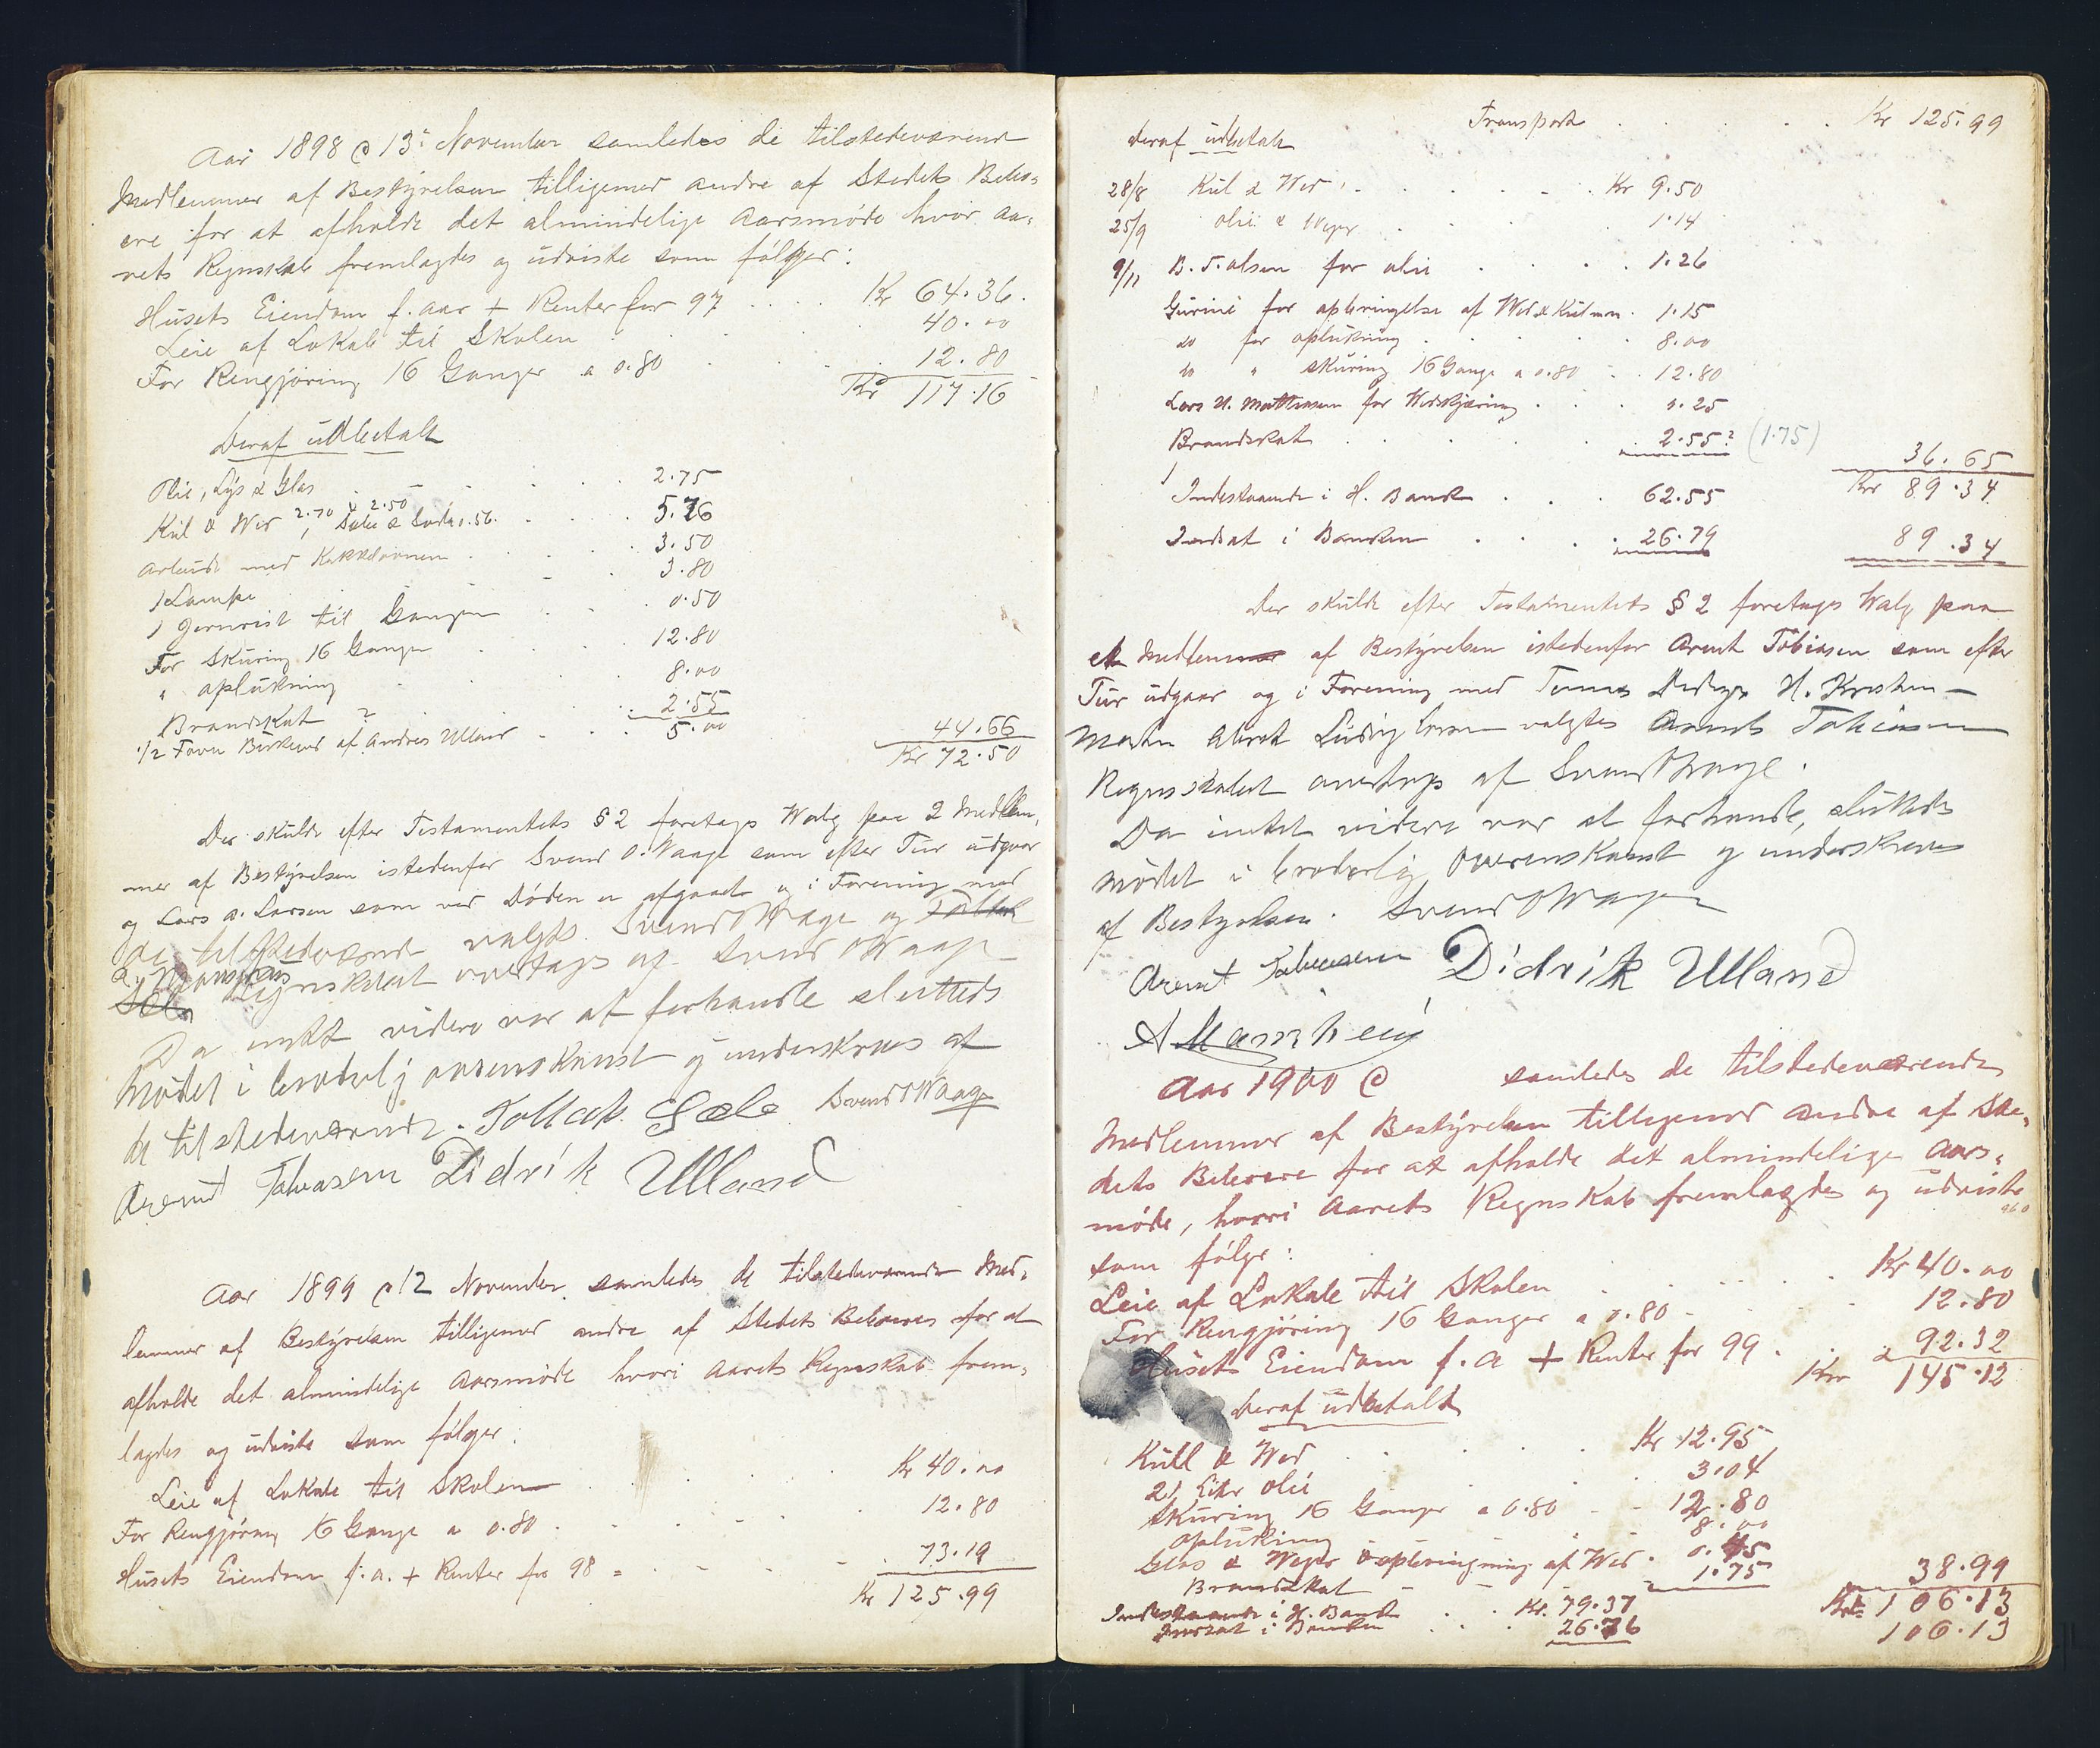 Aar 1898 @ 13de November samledes de tilstedeværend
Medlemmer af Bestyrelsen tilligemed andre af Stedets Bebo=
ere for at afholde det almindelige Aarsmøde hvor Aa=
rets Regnskab fremlagdes og udviste som følger:
Husets Eiendom f. Aar + Renter for 97 . . . . Kr 64.36.
Leie af Lokale til Skolen . . . 40.00
For Rengjøring 16 Ganger a 0.80 . . . 12.80
Kr 117.16
Deraf udbetalt
Olie, Lys & Glas . . . 2.75
Kul & Wed 2.70 & 2.50, Sæbe & Soda 0.56. . . . 5.76
Arbeide med Kakkelovnen . . . 3.50
1 Lampe . . . 3.80
1 Jernrist til Gangen . . . 0.50
For Skuring 16 Ganger . . . 12.80
" oplukning . . . 8.00
Brandskat ? . . . 2.55
1/2 Favn Birkeved af Andreas Ulland . . . 5.00 44.66
Kr 72.50
Der skulde efter Testamentets § 2 foretages Walg paa 2 Medlem,
mer af Bestyrelsen istedenfor Svend O. Waage som efter Tur udgaar
og Lars A. Larsen som ved Døden er afgaaet og i Forening med
de tilstedeværende valgtes Svend O Waage og Tollak
Sæle
Regnskabet overtages af Svend O Waage
Da intet videre var at forhandle slutteds
Mødet i broderlig overenskomst og underskreves af
de tilstedeværende. Tollak Sæle Svend O Waage
Arent Tobiasen Didrik Ulland
Aar 1899 @ 12 November samledes de tilstedeværende Med,
lemmer af Bestyrelsen tilligemed andre af Stedets Beboere for at
afholde det almindelige Aarsmøde hvori Aarets Regnskab frem,
lagdes og udviste som følger:
Leie af Lokale til Skolen . . . Kr 40.00
For Rengjøring 16 Gange a 0.80 . . . 12.80
Husets Eiendom f. a. + Renter for 98 = . . . 73.19
Kr 125.99
Transport . . . Kr 125.99
Deraf udbetalt
28/8 Kul & Wed . . . Kr 9.50
25/9 Olie & Weger . . . 1.14
9/11 B. T. Olsen for olie . . . 1.26
Gurine for opbringelse af Wed & Kul m.m. 1.15
do for oplukning . . . 8.00
do " skuring 16 Gange a 0.80 . . 12.80
Lars H. Mathiasen for Wedskjæring . . . 0.25
Brandskat . . . 2.55? (1.75) 36.65
Kr 89.34
Indestaaende i H. Bank . . . 62.55
Indsat i Banken . . . 26.79 89.34
Der skulde efter Testamentets § 2 foretages Walg paa
et Medlem af Bestyrelsen istedenfor Arent Tobiasen som efter
Tur udgaar og i Forening med
Ludvig valgtes Arent Tobiasen
Regnskabet overtoges af Svend O Waage.
Da intet videre var at forhandle, sluttedes
Mødet i broderlig Overenskomst og underskreves
af Bestyrelsen. Svend O Waage
Arent Tobiasen Didrik Ulland
Aar 1900 @ samledes de tilstedeværende
Medlemmer af Bestyrelsen tilligemed andre af Ste,
dets Beboere for at afholde det almindelige Aars,
møde, hvori Aarets Regnskab fremlagdes og udviste
som følger:
Leie af Lokale til Skolen . . . Kr 40.00
For Rengjøring 16 Ganger a 0.80 . . . 12.80
Husets Eiendom f. a + Renter for 99 . . . 92.32
Kr 145.12
Deraf udbetalt
Kull & Wed . . . Kr 12.95
21 Liter Olie . . . 3.04
Skuring 16 Ganger a 0.80 . . 12.80
Oplukning . . . 8.00
Glas & Weger & opbringning af Wed . 0.45
Brandskat . . . 1.75 38.99
Indestaaende i H. Bank . . Kr. 79.37 Kr 106.13
Indsat i Banken . . . 26.76 106.13